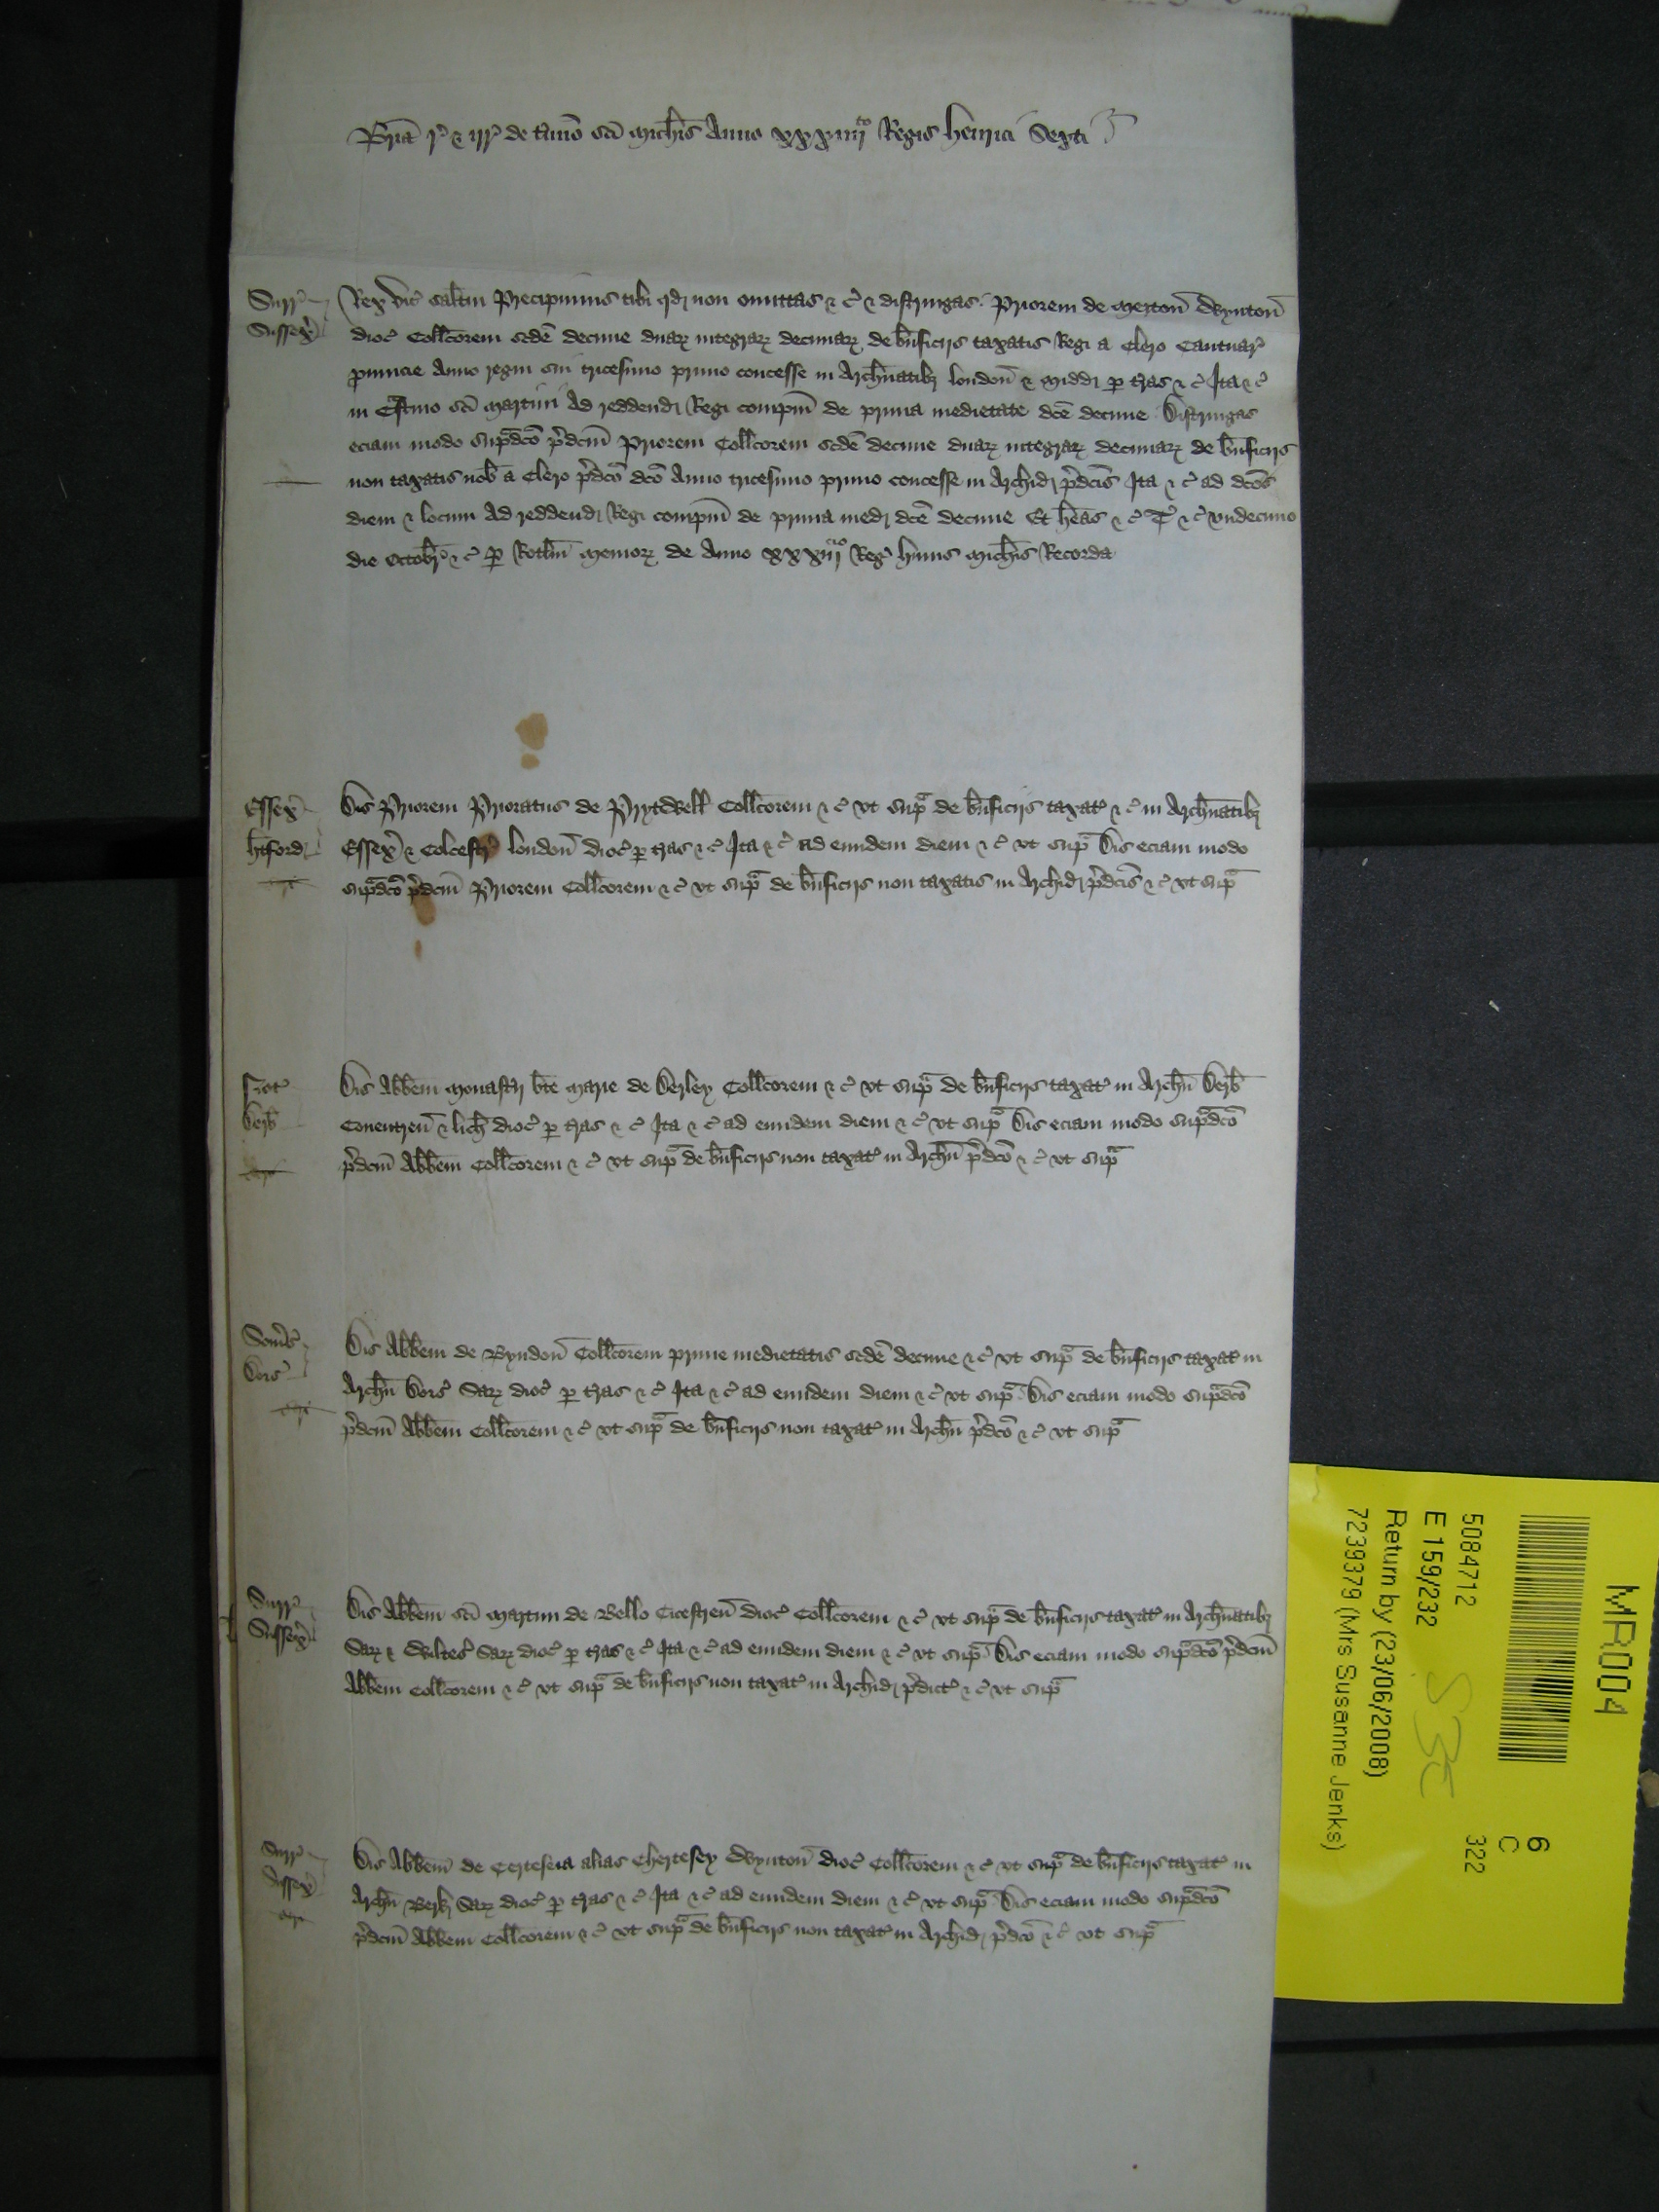 Br̄ia r̾ & irr̾ de t̄mīo sc̄i Mich̄is Anno xxxiiiito Regis Henrici Sexti
Surr̾
Sussex̾
Rex vic̾ sal̄tm Precipimus tibi qd̄ non omittas &c̾ & distringas Priorem de Merton̄ Wynton̄
dioc̾ Coll̄corem sc̄dē decime duaꝝ integraꝝ decimaꝝ de b̄nficijs taxatis Regi a Clero Cantuar̾
ꝓuincie Anno regni sui tricesimo primo concesse in Arch̄natibꝫ london̄ & Midd̄ ꝑ tr̄as &c̾ Ita &c̾
in Cr̄astino sc̄i Martini Ad reddend̄ Regi compm̄ de prima medietate dc̄e decime Distringas
eciam modo sup̄dc̄o p̄dcm̄ Priorem Coll̄corem sc̄dē decime duaꝝ integraꝝ decimaꝝ de b̄nficijs
non taxatis nob̄ a Clero p̄dc̄o dc̄o Anno tricesimo primo concesse in Archid̄ p̄dc̄is Ita &c̾ ad dc̄os
diem & locum Ad reddend̄ Regi compm̄ de prima med̄ dc̄e decime Et hēas &c̾ T̾ &c̾ vndecimo
die Octobr̾ &c̾ ꝑ Rotlm̄ memoꝝ de Anno xxxiiiito Reg̾ huius Mich̄is Recorda
Essex̾
H̄tford̄
Dis Priorem Prioratus de Prytwell Coll̄corem &c̾ vt sup̄ de b̄nficijs taxat̾ &c̾ in Arch̄natibꝫ
Essex̾ & Colcestr̾ london̄ dioc̾ ꝑ tr̄as &c̾ Ita &c̾ ad eundem diem &c̾ vt sup̄ Dis eciam modo
sup̄dc̄o p̄dcm̄ Priorem Coll̄corem &c̾ vt sup̄ de b̄nficijs non taxatis in Archid̄ p̄dc̄is &c̾ vt sup̄
Not̾
Derb̄
Dis Abb̄em Monastr̄ bt̄e Marie de Derley Coll̄corem &c̾ vt sup̄ de b̄nficijs taxat̾ in Arch̄n Derb̄
Couentren̄ & lich̄ dioc̾ ꝑ tr̄as &c̾ Ita &c̾ ad eundem diem &c̾ vt sup̄ Dis eciam modo sup̄dc̄o
p̄dcm̄ Abb̄em Coll̄corem &c̾ vt sup̄ de b̄nficijs non taxat̾ in Arch̄n p̄dc̄o &c̾ vt sup̄
Som̄s̾
Dors̾
Dis Abb̄em de Byndon̄ Coll̄corem prime medietatis sc̄dē decime &c̾ vt sup̄ de b̄nficijs taxat̾ in
Arch̄n Dors̾ Saꝝ dioc̾ ꝑ tr̄as &c̾ Ita &c̾ ad eundem diem &c̾ vt sup̄ Dis eciam modo sup̄dc̄o
p̄dcm̄ Abb̄em Coll̄corem &c̾ vt sup̄ de b̄nficijs non taxat̾ in Arch̄n p̄dc̄o &c̾ vt sup̄
Surr̾
Sussex̾
Dis Abb̄em sc̄i Martini de Bello Cicestren̄ dioc̾ Coll̄corem &c̾ vt sup̄ de b̄nficijs taxat̾ in Arch̄natibꝫ
Saꝝ & Wiltes̾ Saꝝ dioc̾ ꝑ tr̄as &c̾ Ita &c̾ ad eundem diem &c̾ vt sup̄ Dis eciam modo sup̄dc̄o p̄dcm̄
Abb̄em Coll̄corem &c̾ vt sup̄ de b̄nficijs non taxat̾ in Archid̄ p̄dict̾ &c̾ vt sup̄
Surr̾
Sussex̾
Dis Abb̄em de Certeseia alias Chertesey Wynton̄ dioc̾ Coll̄corem &c̾ vt sup̄ de b̄nficijs taxat̾ in
Arch̄n Berk̄ Saꝝ dioc̾ ꝑ tr̄as &c̾ Ita &c̾ ad eundem diem &c̾ vt sup̄ Dis eciam modo sup̄dc̄o
p̄dcm̄ Abb̄em Coll̄corem &c̾ vt sup̄ de b̄nficijs non taxat̾ in Archid̄ p̄dc̄o &c̾ vt sup̄
MR004
6
C
322
5084712
E 159/232
Return by (23/06/2008)
7239379 (Mrs Susanne Jenks)